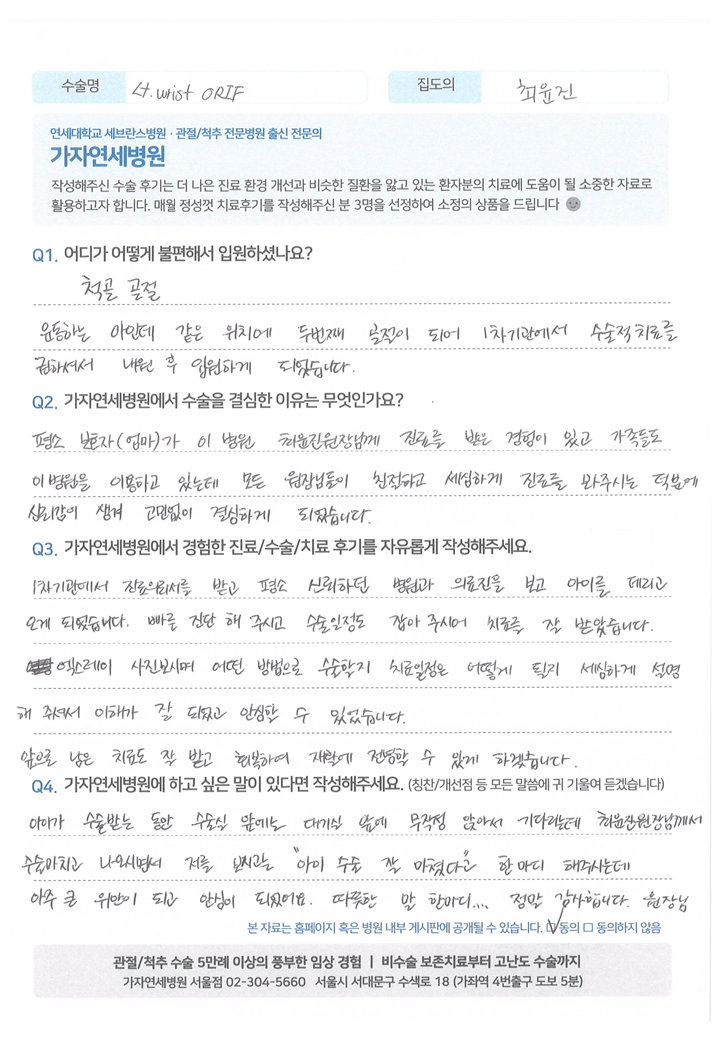 수술명 Lt. wrist ORIF 집도의 최윤진
연세대학교 세브란스병원 · 관절/척추 전문병원 출신 전문의
가자연세병원
작성해주신 수술 후기는 더 나은 진료 환경 개선과 비슷한 질환을 앓고 있는 환자분의 치료에 도움이 될 소중한 자료로
활용하고자 합니다. 매월 정성껏 치료후기를 작성해주신 분 3명을 선정하여 소정의 상품을 드립니다
Q1. 어디가 어떻게 불편해서 입원하셨나요?
척골 골절
운동하는 아인데 같은 위치에 두번째 골절이 되어 1차기관에서 수술적치료를
권하셔서 내원 후 입원하게 되었습니다.
Q2. 가자연세병원에서 수술을 결심한 이유는 무엇인가요?
평소 보호자(엄마)가 이 병원 최윤진원장님께 진료를 받은 경험이 있고 가족들도
이병원을 이용하고 있는데 모든 원장님들이 친절하고 세심하게 진료를 봐주시는 덕분에
심리감이 생겨 고민없이 결심하게 되었습니다.
Q3. 가자연세병원에서 경험한 진료/수술/치료 후기를 자유롭게 작성해주세요.
1차기관에서 진료의뢰서를 받고 평소 신뢰하던 병원과 의료진을 보고 아이를 데리고
오게 되었습니다. 빠른 진단 해 주시고 수술일정도 잡아 주시어 치료를 잘 받았습니다.
엑스레이 사진보시며 어떤 방법으로 수술할지 치료일정은 어떻게 될지 세심하게 설명
해 주셔서 이해가 잘 되었고 안심할 수 있었습니다.
앞으로 남은 치료도 잘 받고 회복하여 재활에 전념할 수 있게 하겠습니다.
Q4. 가자연세병원에 하고 싶은 말이 있다면 작성해주세요. (칭찬/개선점 등 모든 말씀에 귀 기울여 듣겠습니다)
아이가 수술받는 동안 수술실 앞에는 대기실 앞에 무작정 앉아서 기다리는데 최윤진원장님께서
수술마치고 나오시면서 저를 보시고는 "아이 수술 잘 마쳤다"고 한마디 해주시는데
아주 큰 위안이 되고 안심이 되었어요. 따뜻한 말 한마디... 정말 감사합니다. 원장님
본 자료는 홈페이지 혹은 병원 내부 게시판에 공개될 수 있습니다. ☑ 동의 □ 동의하지 않음
관절/척추 수술 5만례 이상의 풍부한 임상 경험 | 비수술 보존치료부터 고난도 수술까지
가자연세병원 서울점 02-304-5660 서울시 서대문구 수색로 18 (가좌역 4번출구 도보 5분)